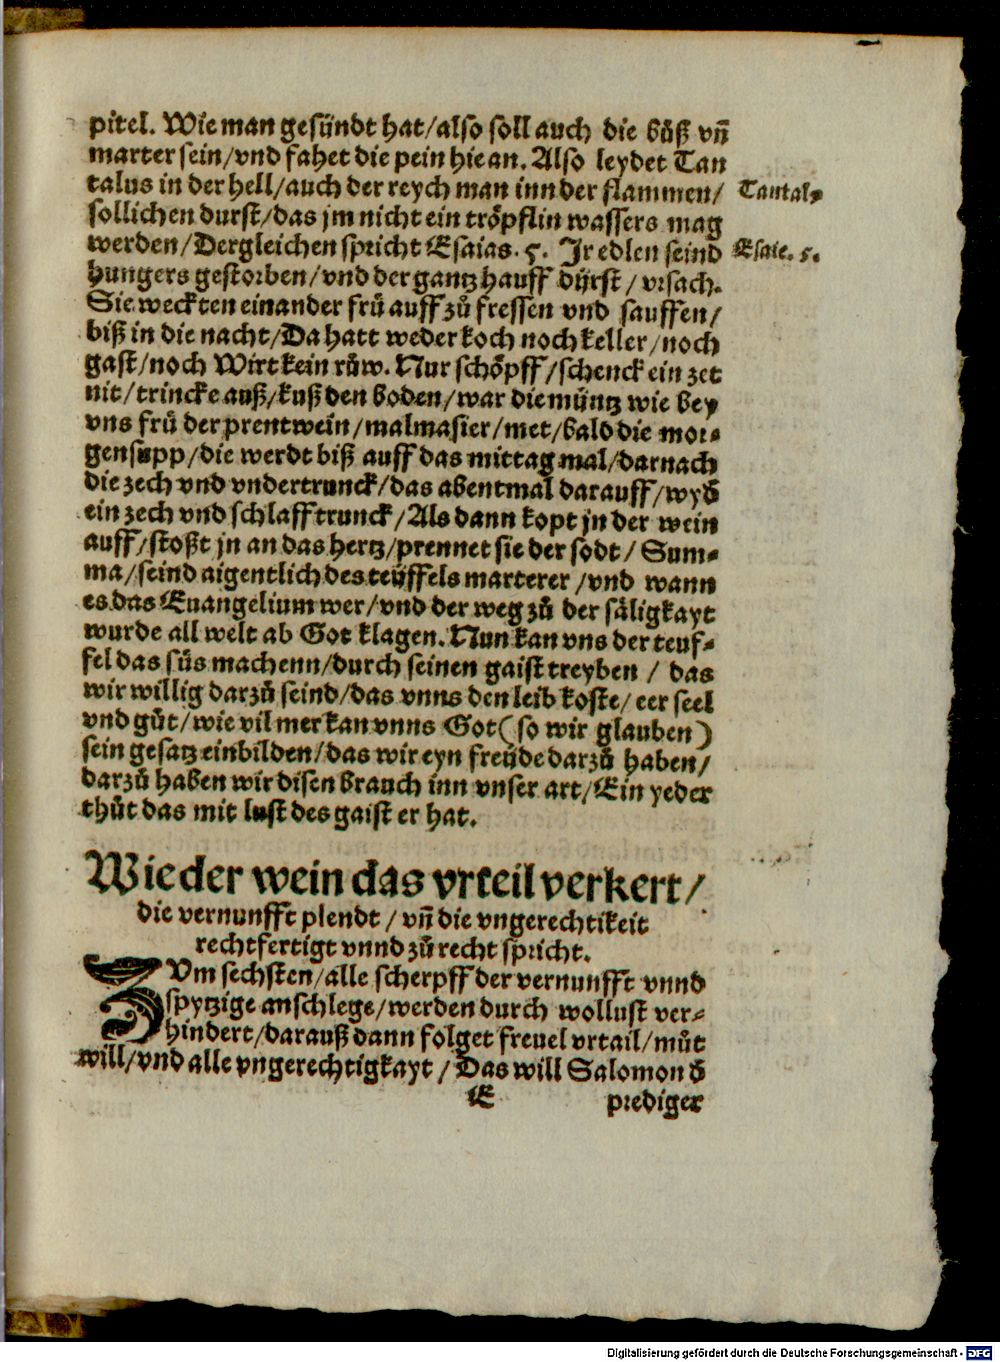 pitel. Wie man gesündt hat/also soll auch die bůß vñ
marter sein/vnd fahet die pein hie an. Also leydet Tan
talus in der hell/auch der reych man inn der flammen/
sollichen durst/das jm nicht ein tröpflin wassers mag
werden/Dergleichen spricht Esaias. 5. Ir edlen seind
hungers gestorben/vnd der gantz hauff dürst/vrsach.
Sie weckten einander frů auff zů fressen vnd sauffen/
biß in die nacht/Da hatt weder koch noch keller/noch
gast/noch Wirt kein růw. Nur schöpff/schenck ein zet
nit/trincke auß/kuß den boden/war die müntz wie bey
vns frů der prentwein/malmasier/met/bald die mor-
gensupp/die werdt biß auff das mittag mal/darnach
die zech vnd vndertrunck/das abentmal darauff/wyð
ein zech vnd schlafftrunck/Als dann kopt jn der wein
auff/stoßt jn an das hertz/prennet sie der sodt/Sum-
ma/seind aigentlich des teüffels marterer/vnd wann
es das Euangelium wer/vnd der weg zů der säligkayt
wurde all welt ab Got klagen. Nun kan vns der teuf-
fel das süs machenn/durch seinen gaist treyben / das
wir willig darzů seind/das vnns den leib koste/eer seel
vnd gůt/wie vil mer kan vnns Got(so wir glauben)
sein gesatz einbilden/das wir eyn freüde darzů haben/
darzů haben wir disen brauch inn vnser art/Ein yeder
thůt das mit lust des gaist er hat.
Tantal9
Esaie. 5.
Wie der wein das vrteil verkert/
die vernunfft plendt/vñ die vngerechtikeit
rechtfertigt vnnd zů recht spricht.
ZVm sechsten/alle scherpff der vernunfft vnnd
spytzige anschlege/werden durch wollust ver-
hindert/darauß dann folget freuel vrtail/můt
will/vnd alle vngerechtigkayt/Das will Salomon ð
E prediger
Digitalisierung gefördert durch die Deutsche Forschungsgemeinschaft - DFG